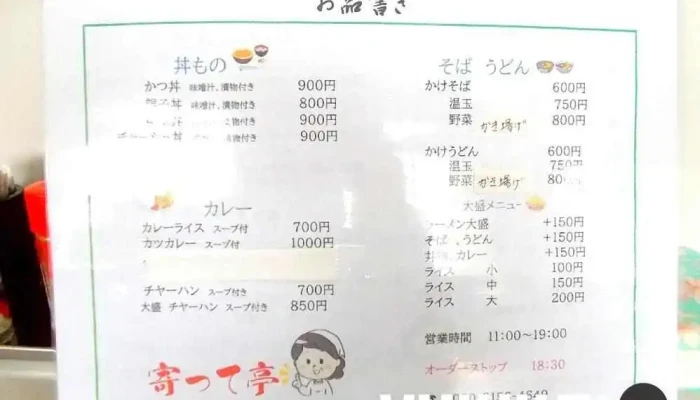 お品書き
丼もの
かつ丼 味噌汁、漬物付き 900円
丼 味噌汁、漬物付き 800円
丼 物付き 900円
丼 漬物付き 900円
カレー
カレーライス スープ付 700円
カツカレー スープ付 1000円
チャーハン スープ付き 700円
大盛 チャーハン スープ付き 850円
寄って亭
そば うどん
かけそば 600円
温玉 750円
野菜 かき揚げ 800円
かけうどん 600円
温玉 750円
野菜 かき揚げ
大盛メニュー
ラーメン大盛 +150円
そば、うどん +150円
丼 、カレー +150円
ライス 小 100円
ライス 中 150円
ライス 大 200円
営業時間 11:00~19:00
オーダーストップ 18:30